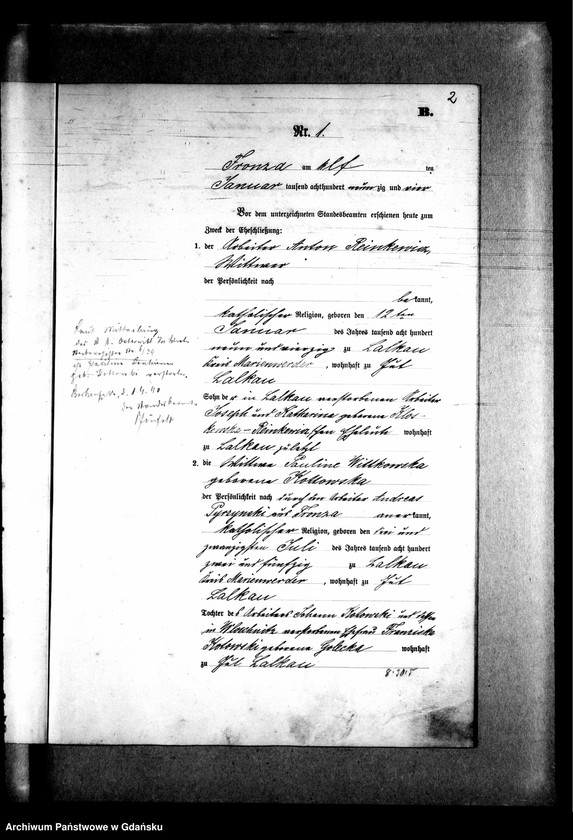 2
B.
Nr. 1.
Fronza am elf ten
Januar tausend achthundert neunzig und vier
Vor dem unterzeichneten Standesbeamten erschienen heute zum
Zweck der Eheschließung:
1. der Arbeiter Anton Reinkewicz,
Wittwer
der Persönlichkeit nach
bekannt,
katholischer Religion, geboren den 12 ten
Januar des Jahres tausend acht hundert
neun und vierzig zu Lalkau
Kreis Marienwerder, wohnhaft zu Gut
Lalkau
Sohn der in Lalkau verstorbenen Arbeiter
Joseph und Katharina geborene
Reinkewicz'schen Eheleute wohnhaft
zu Lalkau zuletzt
2. die Wittwe Pauline Wittkowska
geborene Kottowska
der Persönlichkeit nach durch den Arbeiter Andreas
Pyrzynski aus Fronza anerkannt,
katholischer Religion, geboren den drei und
zwanzigsten Juli des Jahres tausend acht hundert
zwei und fünfzig zu Lalkau
Kreis Marienwerder, wohnhaft zu Gut
Lalkau
Tochter des Arbeiters Johann Kotowski und dessen
in verstorbenen Ehefrau Franziska
Kotowski geborene Golecka wohnhaft
zu Gut Lalkau
Laut Mitteilung
des
geb. verstorben.
d. 1.4.40
Der Standesbeamte
Archiwum Państwowe w Gdańsku